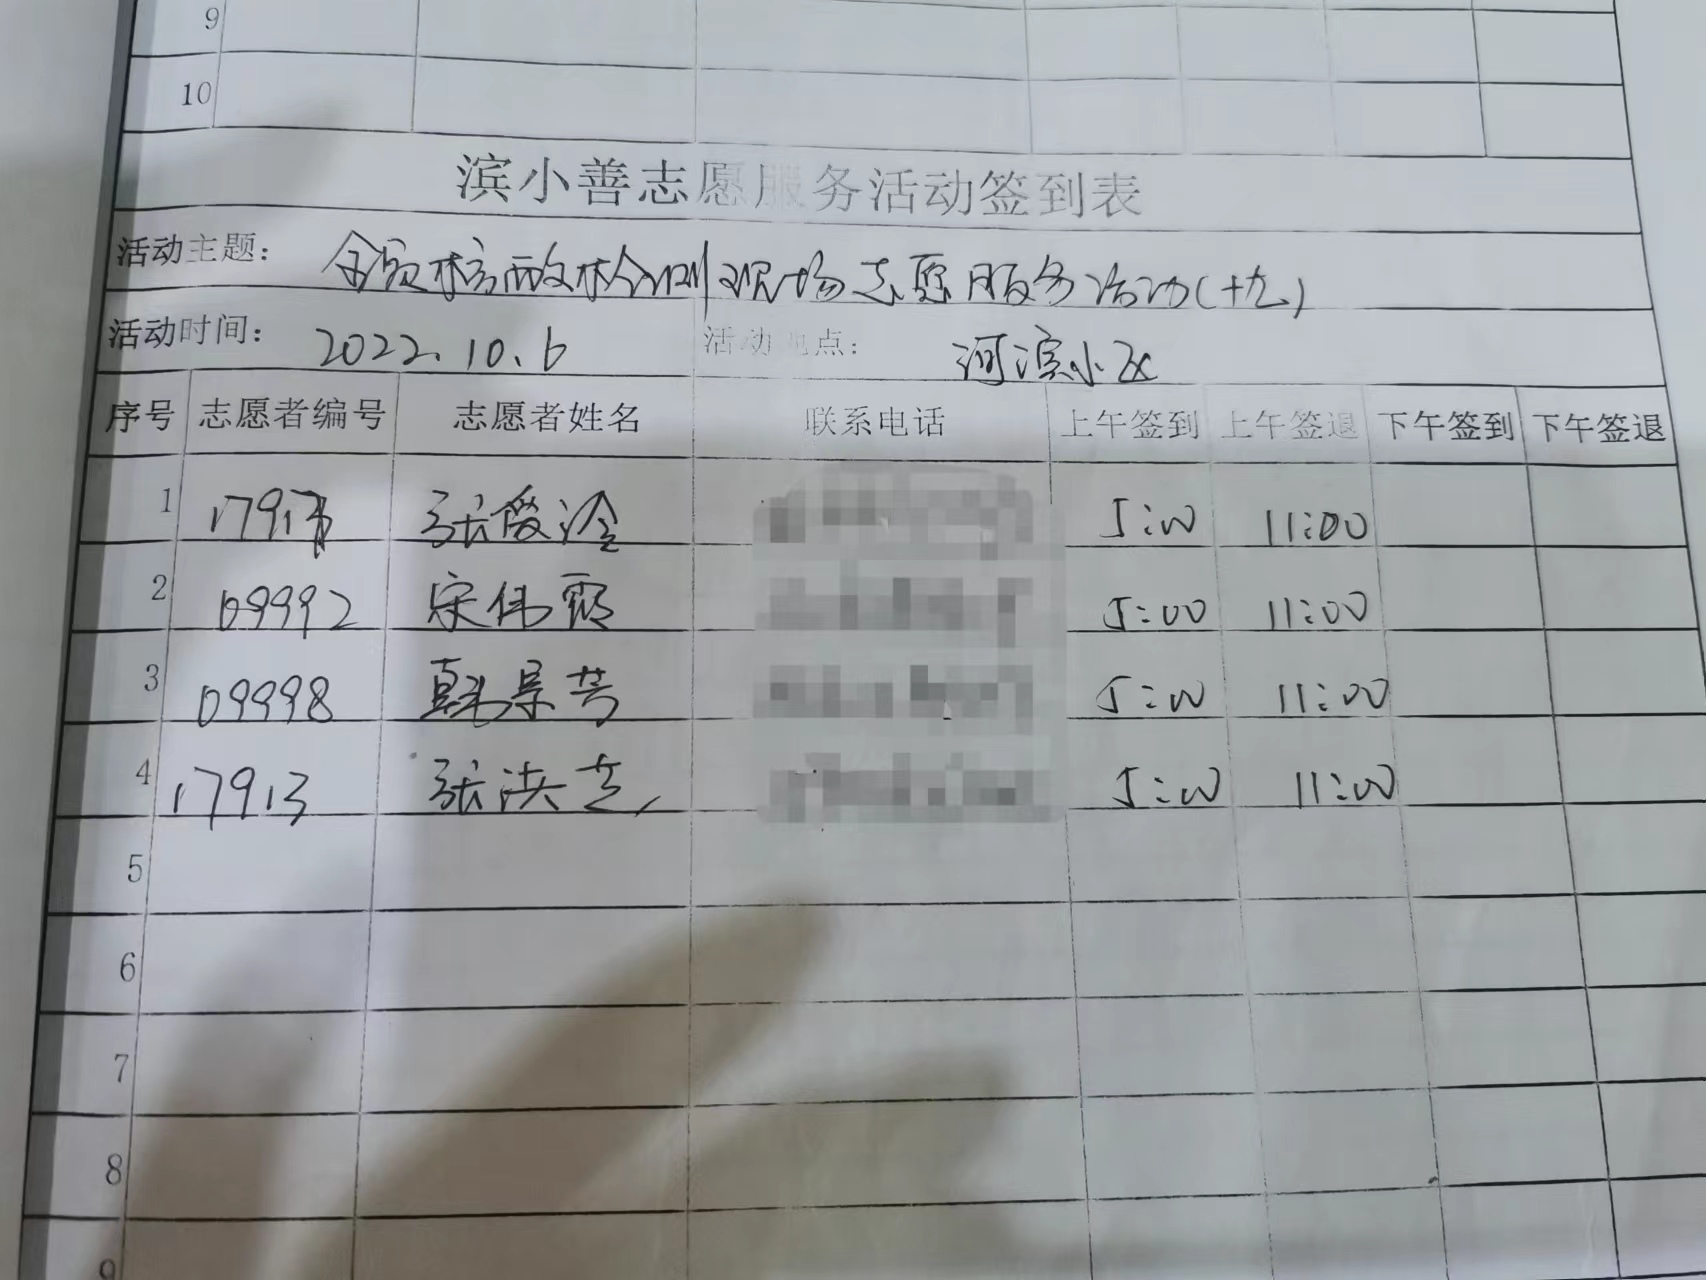 9
10
滨小善志愿服务活动签到表
活动主题： 全员核酸检测现场志愿服务活动(十九)
活动时间： 2022.10.6 活动地点： 河滨小区
序号 志愿者编号 志愿者姓名 联系电话 上午签到 上午签退 下午签到 下午签退
1 张俊冷 5:00 11:00
2 09992 宋伟霞 5:00 11:00
3 09998 韩景芳 5:00 11:00
4 17913 张洪芝 5:00 11:00
5
6
7
8
9